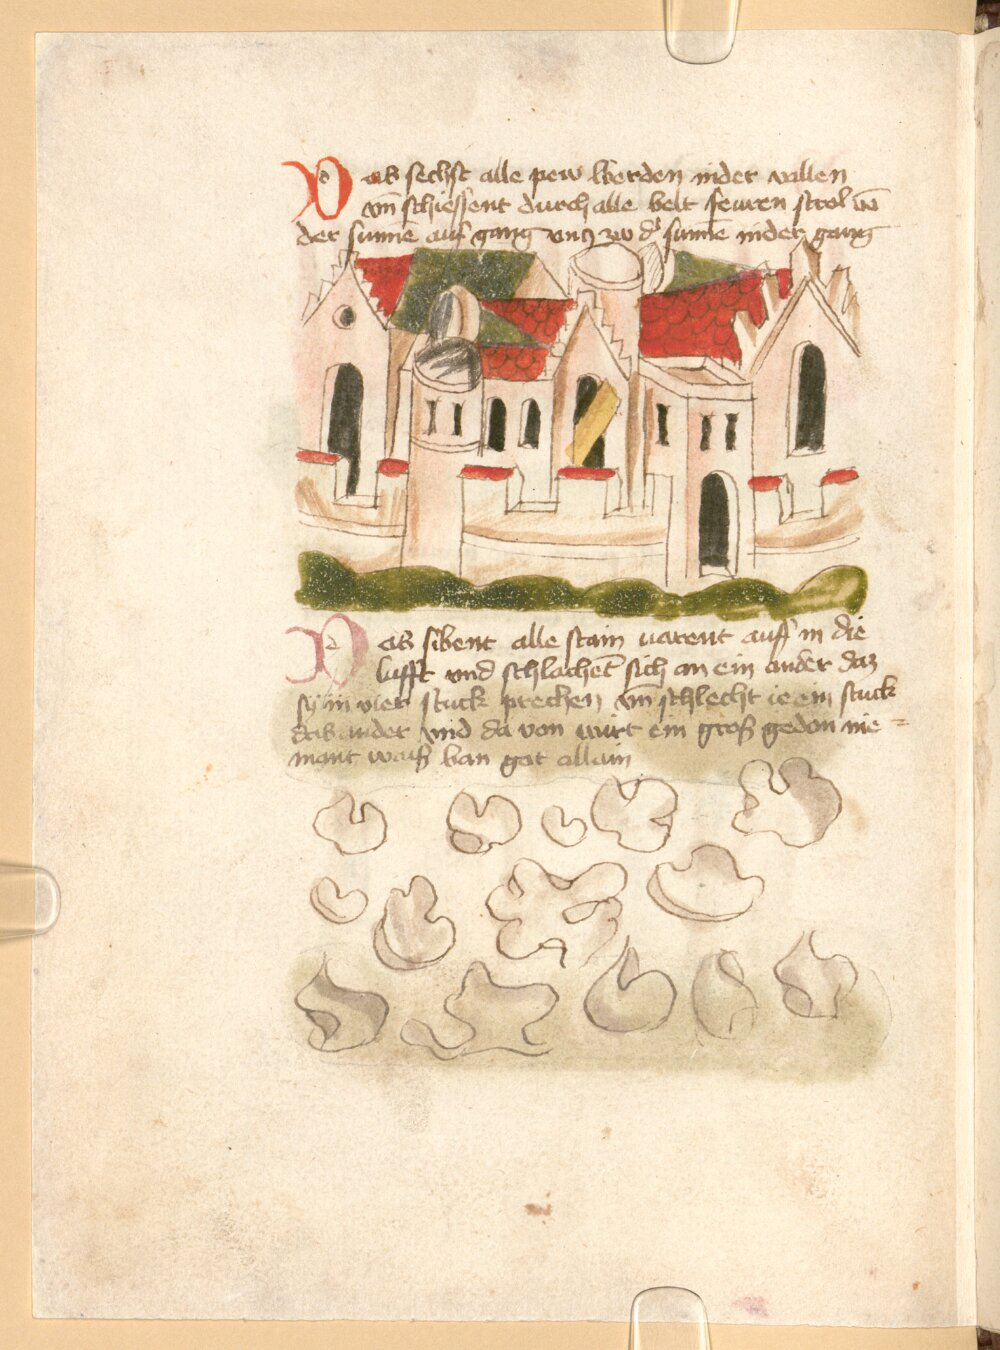 Das sechst alle pew werden nider vallen
vn̄ schiessent durch alle welt feuren strol vō
der sunne auf gang vncz zu d' sunne nider gang
Das sibent alle stain varent auff in die
lufft vnd schlachent sich an ein ander daz
sy in vier stuck prechen vn̄ schlecht ie ein stuck
das ander vnd da von wirt ein groß gedon nie=
mant waiß wan got allain